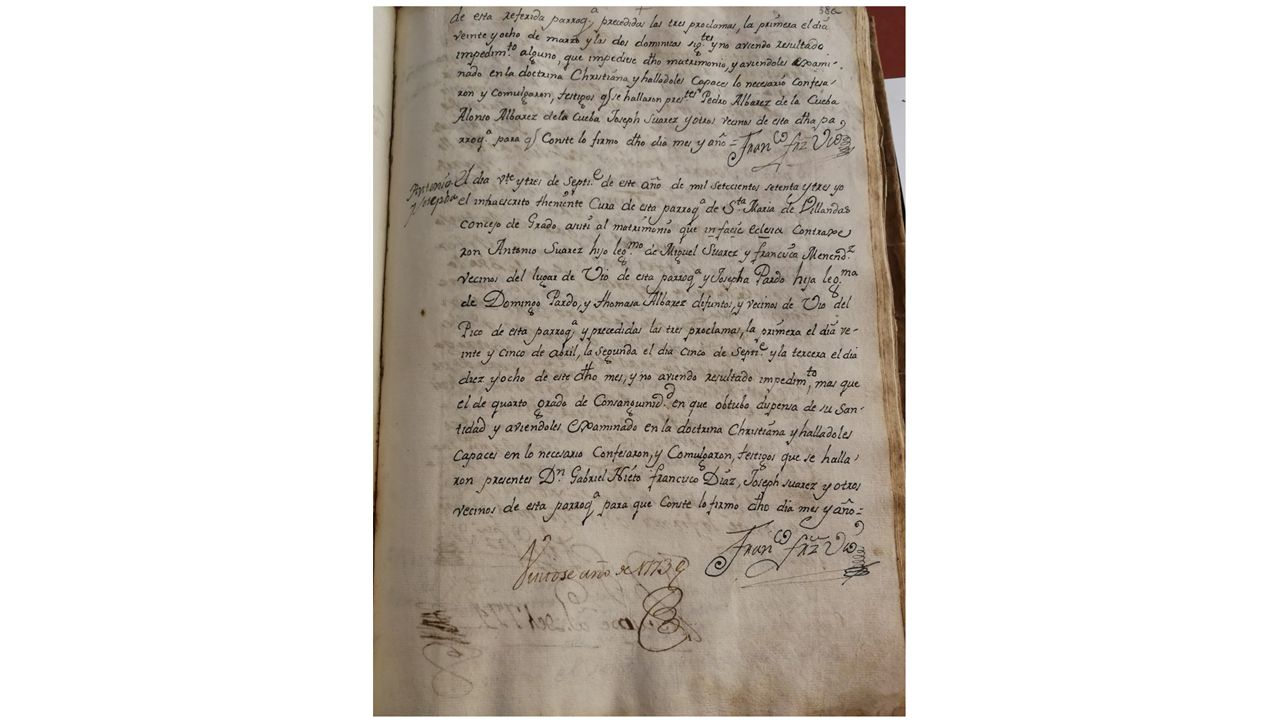 de esta referida parroq.ª precedidas las tres proclamas, la primera el dia
veinte y ocho de marzo y las dos dominicas sig.tes y no aviendo resultado
impedim.to alguno, que impediese dho matrimonio, y aviendoles exami-
nado en la doctrina Christiana y halladoles Capaces lo necesario Confesa-
ron y Comulgaron, testigos q se hallaron pres.tes Pedro Albarez de la Cueba
Alonso Albarez de la Cueba Joseph Suarez y otros vecinos de esta dha pa
rroq.ª para q Conste lo firmo dho dia mes y año =
Fran.co frz Vio
Antonio
y Josepha
El dia vte y tres de Septi.e de este año de mil setecientos setenta y tres yo
el infraescrito theniente Cura de esta parroq.ª de S.ta Maria de Villandas
concejo de Grado, asisti al matrimonio que in facie eclesia Contraxe
ron Antonio Suarez hijo leg.mo de Miguel Suarez y francisca Menend.z
vecinos del lugar de Vio de esta parroq.ª y Josepha Pardo hija leg.ma
de Domingo Pardo, y thomasa Albarez defuntos, y vecinos de Vio del
Pico de esta parroq.ª y precedidas las tres proclamas, la primera el dia ve-
inte y cinco de abril, la segunda el dia cinco de Septi.e y la tercera el dia
diez y ocho de este dho mes, y no aviendo resultado impedim.to, mas que
el de quarto grado de Consanguinid.d en que obtubo dispensa de su San-
tidad y aviendoles examinado en la doctrina Christiana y halladoles
Capaces en lo necesario Confesaron, y Comulgaron, testigos que se halla
ron presentes D.n Gabriel Niéto francisco Diaz, Joseph suarez y otros
vecinos de esta parroq.ª para que Conste lo firmo dho dia mes y año =
Fran.co frz Vio
año de 1773